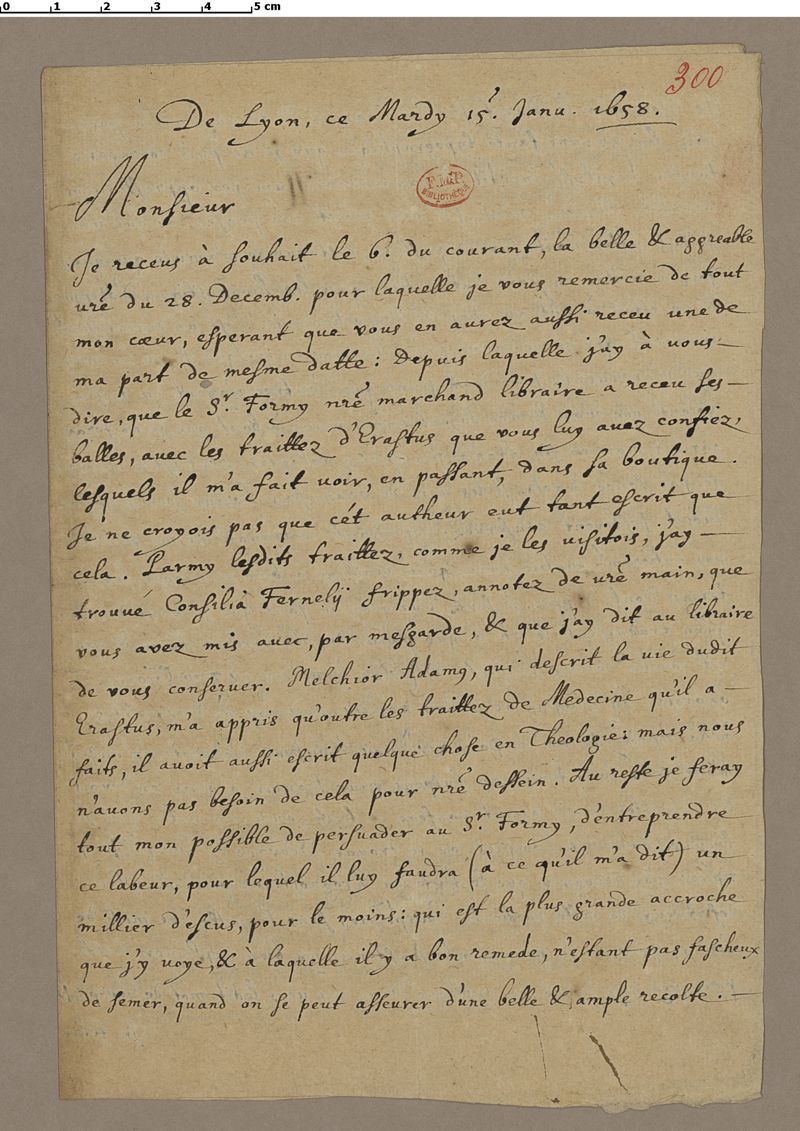 0 1 2 3 4 5 cm
300
De Lyon, ce Mardy 15e. Janu. 1658.
F.M.P.
BIBLIOTHÈQUE
Monsieur
Je receus à souhait le 6e. du courant, la belle & aggreable
vrẽ du 28. Decemb. pour laquelle je vous remercie de tout
mon cœur, esperant que vous en aurez aussi receu une de
ma part de mesme datte: Depuis laquelle j'ay à vous
dire, que le Sr. Formy nrẽ marchand libraire a receu ses
balles, avec les traittez d'Erastus que vous luy avez confiez,
lesquels il m'a fait voir, en passant, dans sa boutique.
Je ne croyois pas que cét autheur eut tant escrit que
cela. Parmy lesdits traittez, comme je les visitois, j'ay
trouvé Consilia Fernelij frippez, annotez de vrẽ main, que
vous avez mis avec, par mesgarde, & que j'ay dit au libraire
de vous conserver. Melchior Adamy, qui descrit la vie dudit
Erastus, m'a appris qu'outre les traittez de Medecine qu'il a
faits, il avoit aussi escrit quelque chose en Theologie: mais nous
n'avons pas besoin de cela pour nrẽ dessein. Au reste je feray
tout mon possible de persuader au Sr. Formy, d'entreprendre
ce labeur, pour lequel il luy faudra (à ce qu'il m'a dit) un
millier d'escus, pour le moins: qui est la plus grande accroche
que j'y voye, & à laquelle il y a bon remede, n'estant pas fascheux
de semer, quand on se peut asseurer d'une belle & ample recolte.